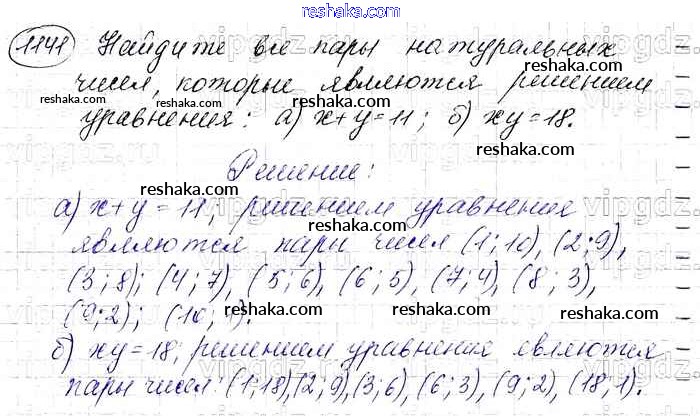 reshaka.com
1141 Найдите все пары натуральных
чисел, которые являются решением
уравнения: а) x+y=11; б) xy=18.
Решение:
а) x+y=11; решением уравнения
являются пары чисел (1;10), (2;9),
(3;8); (4;7), (5;6), (6;5), (7;4), (8;3),
(9;2); (10;1).
б) xy=18; решением уравнения являются
пары чисел: (1;18), (2;9), (3;6), (6;3), (9;2), (18;1).